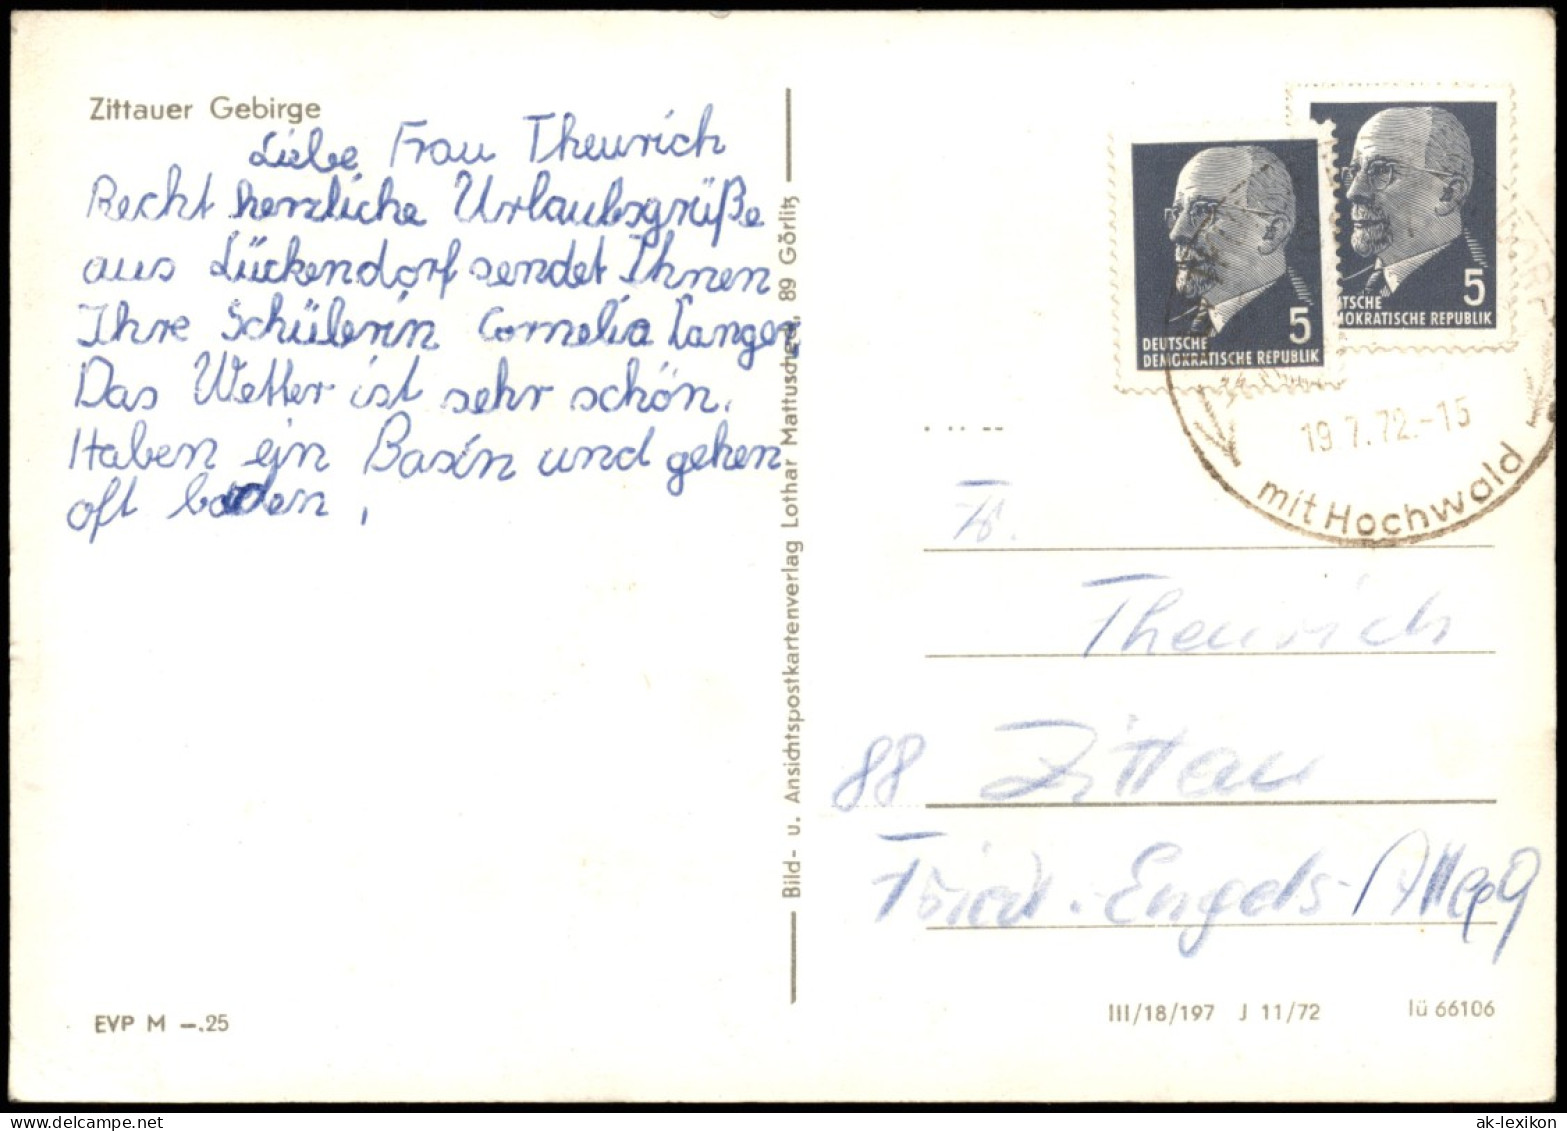 Zittauer Gebirge
Liebe Frau Theurich
Recht herzliche Urlaubsgrüße
aus Lückendorf sendet Ihnen
Ihre Schülerin Cornelia Langer,
Das Wetter ist sehr schön.
Haben ein Basin und gehen
oft baden,
EVP M —.25
Bild- u. Ansichtspostkartenverlag Lothar Mattuscheck, 89 Görlitz
5
DEUTSCHE
DEMOKRATISCHE REPUBLIK
5
TSCHE
MOKRATISCHE REPUBLIK
19.7.72.-15
mit Hochwald
Fr.
Theurich
88 Zittau
Friedr.-Engels-Allee 9
III/18/197 J 11/72
lü 66106
ak-lexikon